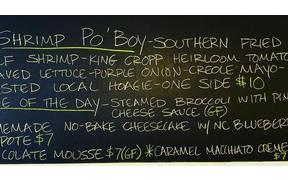 SHRIMP PO'BOY-SOUTHERN FRIED
LF SHRIMP-KING CROPP HEIRLOOM TOMATO
AVED LETTUCE-PURPLE ONION-CREOLE MAYO-
STED LOCAL HOAGIE-ONE SIDE $10
E OF THE DAY-STEAMED BROCCOLI WITH PIM
CHEESE SAUCE (GF)
MEMADE NO-BAKE CHEESECAKE W/NC BLUEBER
POTE $7
COLATE MOUSSE $7(GF) *CARAMEL MACCHIATO CREME
$7